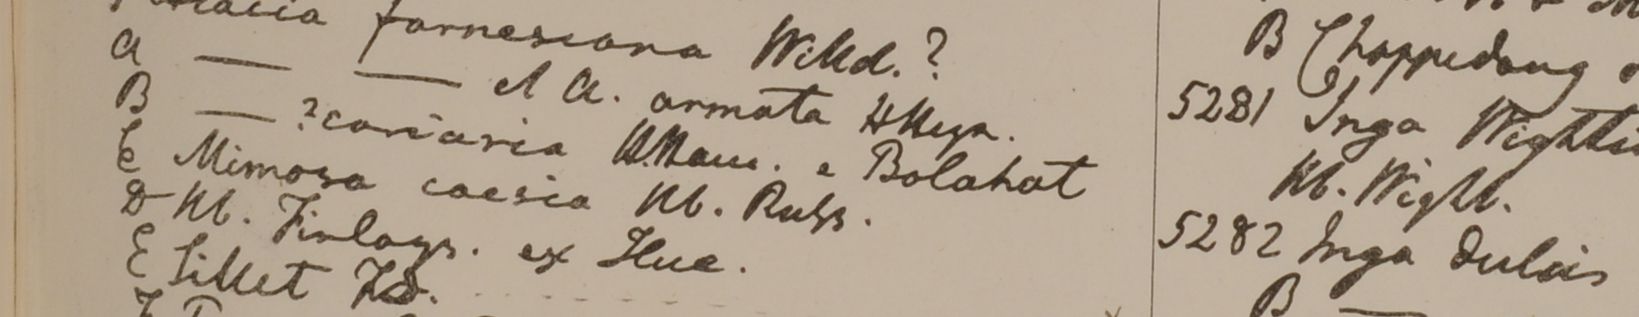 Acacia farnesiana Willd.?
A — — et A. armata H Heyn.
B — ? coriaria H. Ham. e Bolahat
C Mimosa caesia Hb. Russ.
D Hb. Finlays. ex Hue.
E Sillet FD.
B Chappedong
5281 Inga Wightii
Hb. Wight.
5282 Inga dulcis
B —